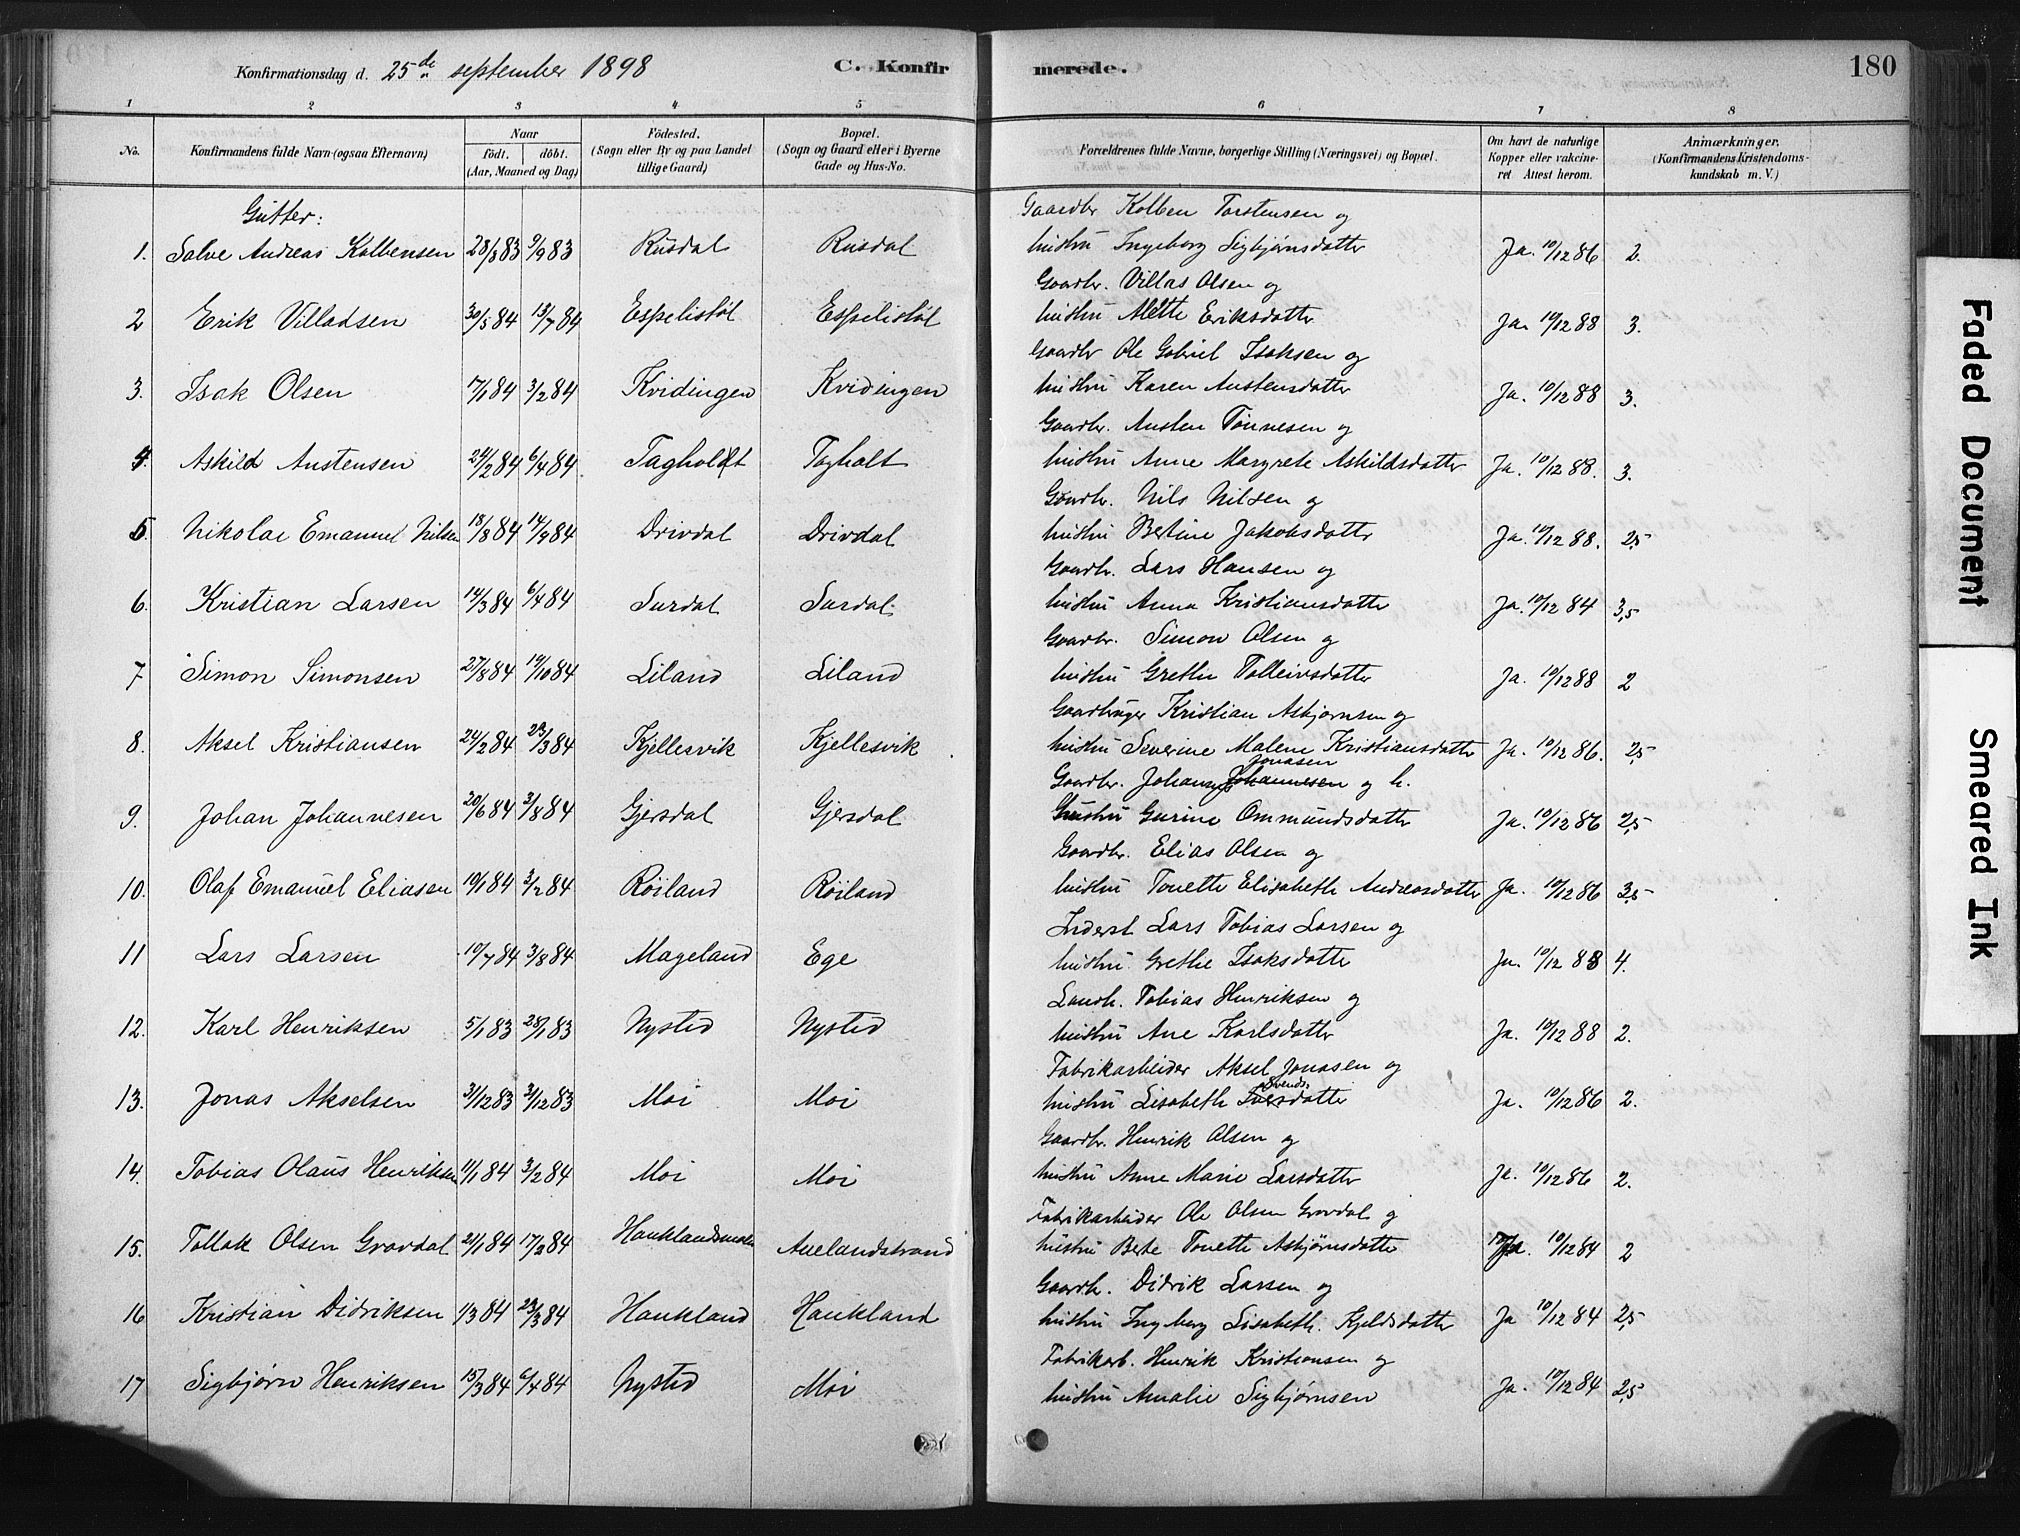 Konfirmationsdag d. 25de september 1898
C. Konfirmerede.
180
1 2 3 4 5 6 7 8
No.
Konfirmandens fulde Navn (ogsaa Efternavn)
Naar
födt. döbt.
(Aar, Maaned og Dag)
Födested.
(Sogn eller By og paa Landet
tillige Gaard)
Bopæl.
(Sogn og Gaard eller i Byerne
Gade og Hus-No.
Forældrenes fulde Navne, borgerlige Stilling (Næringsvei) og Bopæl.
Om havt de naturlige
Kopper eller vakcine-
ret Attest herom.
Anmærkninger.
(Konfirmandens Kristendoms-
kundskab m. V.)
Gutter:
Gaardbr Kolben Torstensen og
1. Salve Andreas Kolbensen 28/8 83 9/9 83 Rusdal Rusdal hustru Ingeborg Sigbjørnsdatter Ja. 10/12 86 2.
Gaardbr. Villas Olsen og
2 Erik Villadsen 30/5 84 13/7 84 Espelistøl Espelistøl hustru Mette Eriksdatter Ja 10/12 88 3.
Gaardbr Ole Gabriel Isaksen og
3. Isak Olsen 17/1 84 3/2 84 Kvidingen Kvidingen hustru Karen Austensdatter Ja. 10/12 88 3.
Gaardbr. Austen Tønnesen og
4. Askild Austensen 24/2 84 6/4 84 Tagholdt Tagholt hustru Anne Margrete Askildsdatter Ja. 10/12 88. 3.
Gaardbr. Nils Nilsen og
5 Nikolai Emanuel Nilsen 18/8 84 14/9 84 Drivdal Drivdal hustru Bertine Jakobsdatter Ja. 10/12 88. 2,5
Gaardbr. Lars Hansen og
6. Kristian Larsen 14/3 84 6/4 84 Surdal Surdal hustru Anna Kristiansdatter Ja. 10/12 84 3,5
Gaardbr. Simon Olsen og
7 Simon Simonsen 27/8 84 19/10 84 Liland Liland hustru Grethe Tolleivsdatter Ja. 10/12 88 2
Gaardbruger Kristian Asbjørnsen og
8. Aksel Kristiansen 24/2 84 23/3 84 Kjellesvik Kjellesvik hustru Severine Malene Kristiansdatter Ja. 10/12 86. 2,5
Jonasen
Gaardbr. Johannes Johannesen og h.
9. Johan Johannesen 20/6 84 3/8 84 Gjersdal Gjersdal hustru Gurine Ommundsdatter Ja. 10/12 86 2,5
Gaardbr. Elias Olsen og
10. Olaf Emanuel Eliasen 10/1 84 3/2 84 Röiland Röiland hustru Tonette Elisabeth Andreasdatter Ja. 10/12 86 3,5
Inderst Lars Tobias Larsen og
11 Lars Larsen 10/7 84 3/8 84 Mageland Ege hustru Grethe Isaksdatter Ja. 10/12 88 4.
Landh. Tobias Henriksen og
12. Karl Henriksen 5/1 83 28/1 83 Nysted Nysted hustru Ane Karlsdatter Ja. 10/12 88 2.
Fabrikarbeider Aksel Jonasen og
13. Jonas Akselsen 3/12 83 31/12 83 Moi Moi hustru Lisabeth Svendsdatter Ja. 10/12 86 2.
Gaardbr. Henrik Olsen og
14. Tobias Olaus Henriksen 11/1 84 3/2 84 Moi Moi hustru Anne Marie Larsdatter Ja. 10/12 86 2.
Fabrikarbeider Ole Olsen Gravdal og
15. Tollak Olsen Gravdal 21/1 84 17/2 84 Hauklandsmoen Auelandstrand hustru Berte Tonette Asbjørnsdatter Ja. 10/12 84 2
Gaardb. Didrik Larsen og
16 Kristian Didriksen 1/3 84 23/3 84 Haukland Haukland hustru Ingeborg Lisabeth Kjeldsdatter Ja 10/12 84 2,5
Fabrikarb. Henrik Kristiansen og
17 Sigbjørn Henriksen 15/3 84 6/4 84 Nysted Moi hustru Amalie Sigbjørnsen Ja. 10/12 84 2,5
Faded Document
Smeared Ink